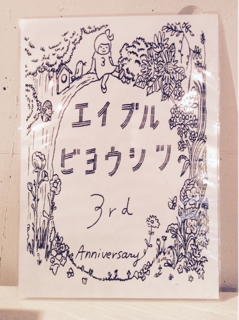 エイブル
ビヨウシツ
3rd
Anniversary